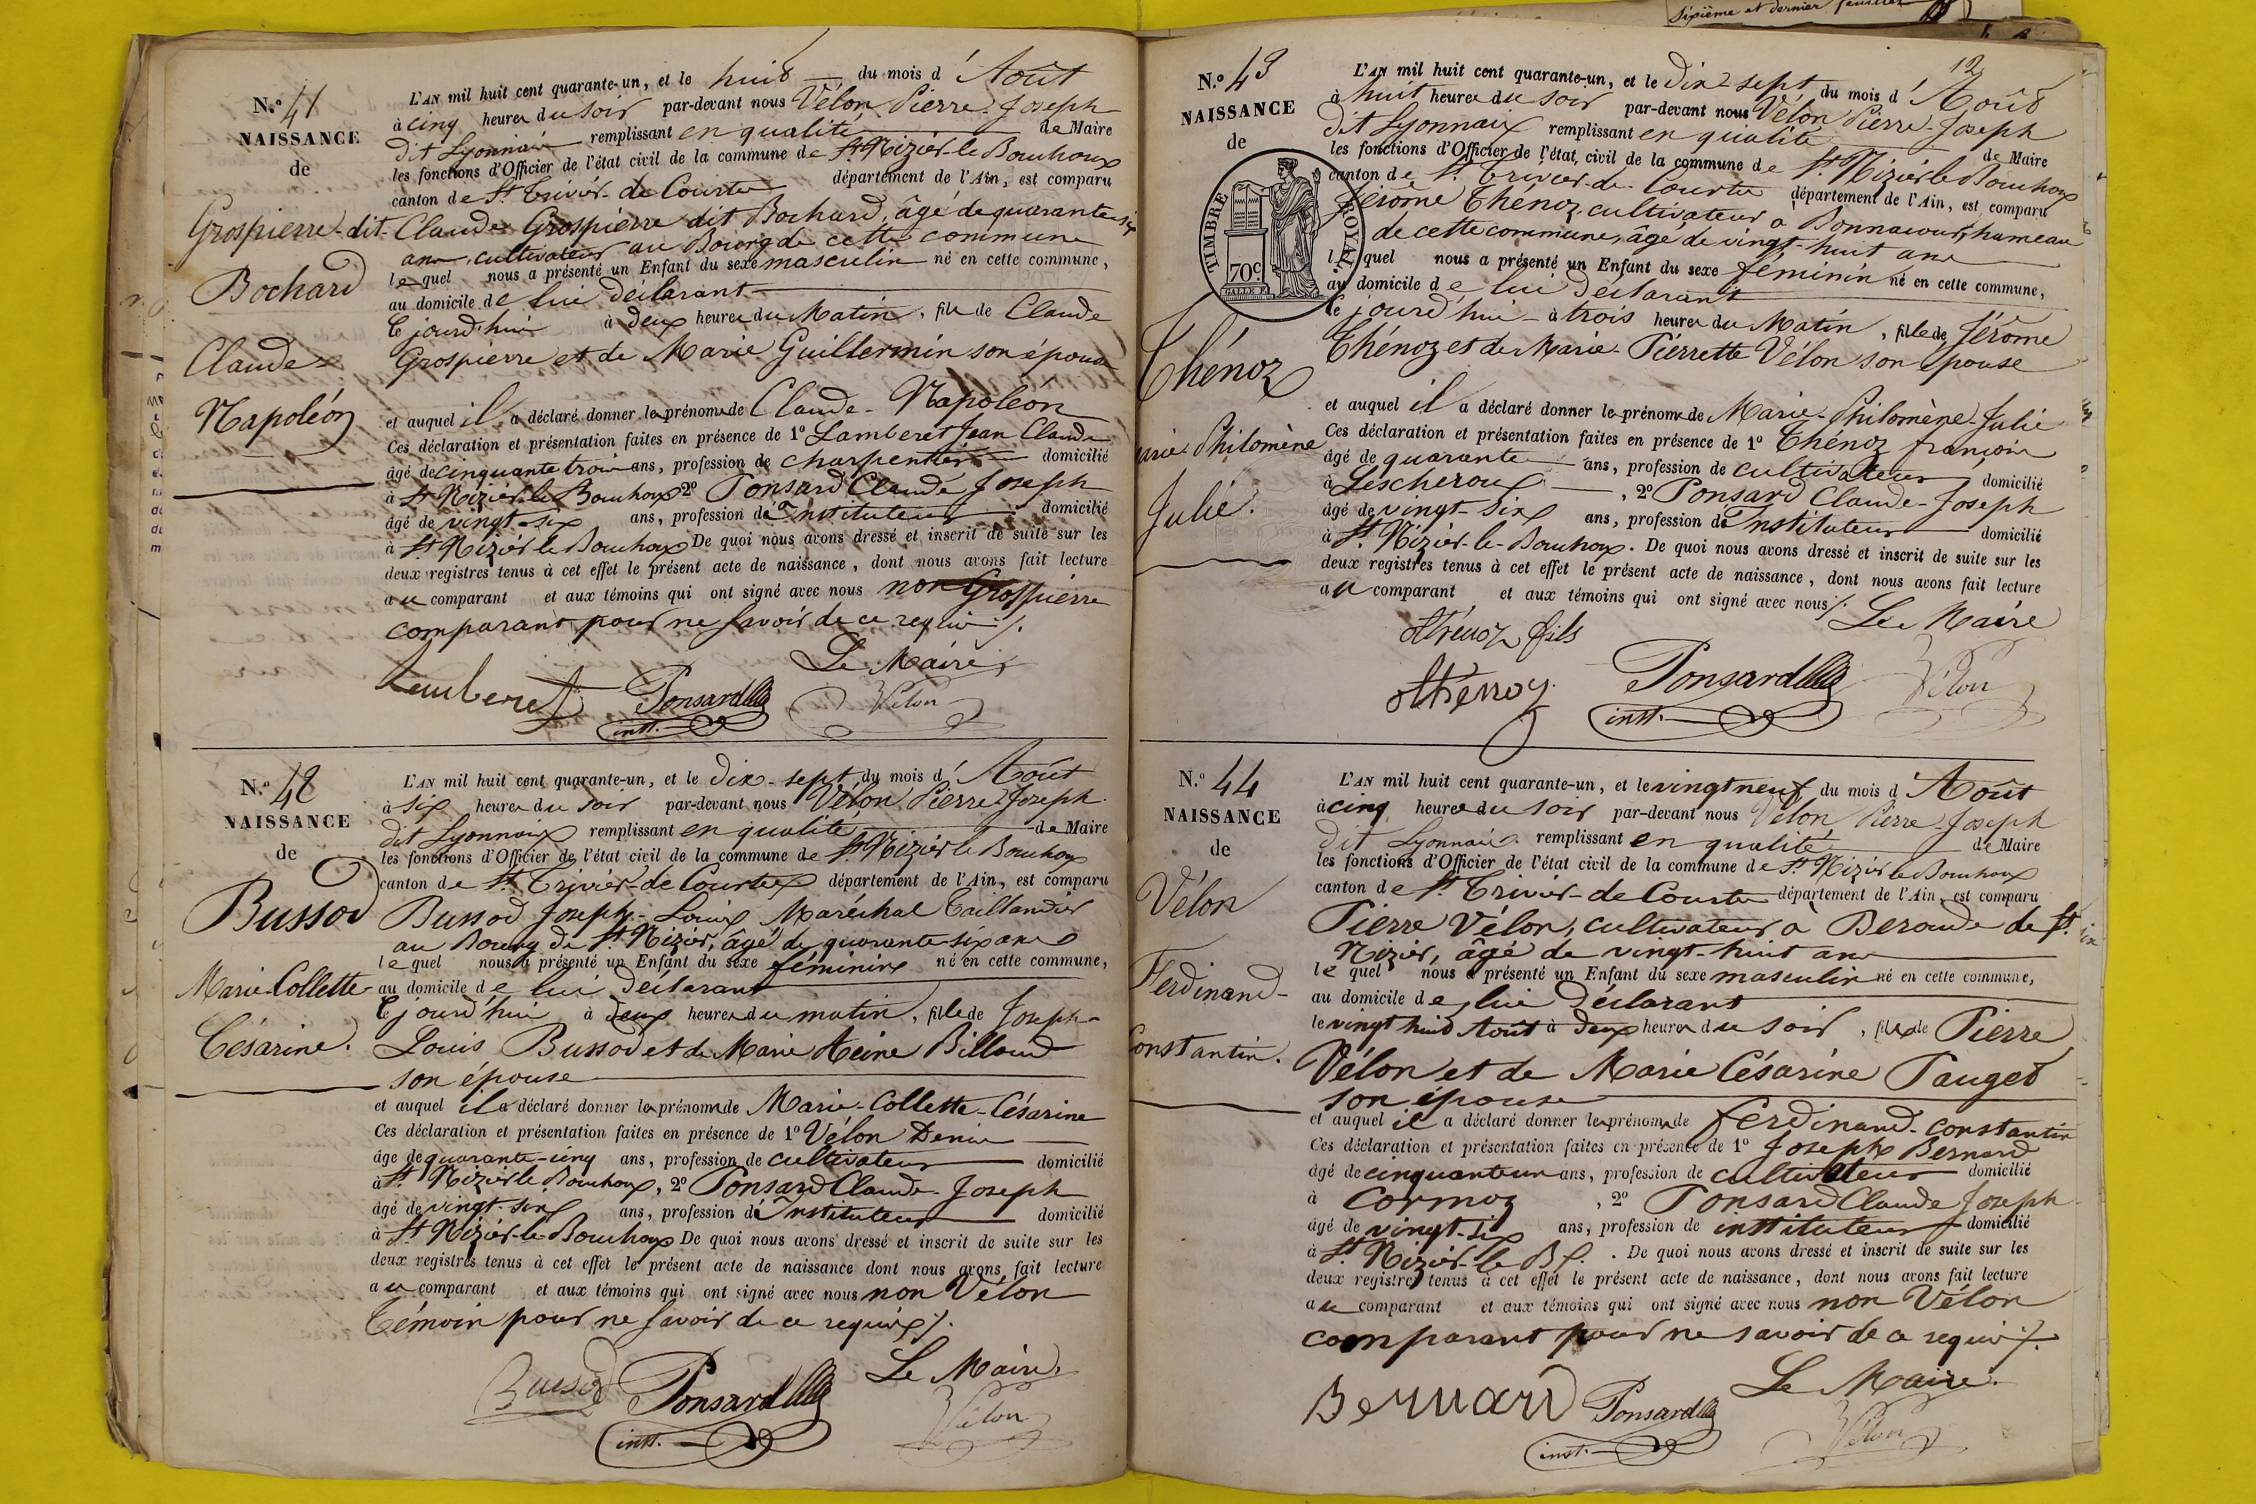 N.º 41
NAISSANCE
de
Grospierre dit
Bochard
Claude
Napoléon
L'AN mil huit cent quarante-un, et le huit du mois d'Août
à cinq heures du soir par-devant nous Vélon Pierre-Joseph
dit Lyonnais remplissant en qualité de Maire
les fonctions d'Officier de l'état civil de la commune de St. Nizier-le-Bouchoux
canton de St. Trivier-de-Courtes département de l'Ain, est comparu
Claude Grospierre dit Bochard, âgé de quarante-six
ans, cultivateur au Bourg de cette commune
lequel nous a présenté un Enfant du sexe masculin né en cette commune,
au domicile de lui déclarant
ce jourd'hui à deux heures du Matin, fils de Claude
Grospierre et de Marie Guillermin son épouse
et auquel il a déclaré donner les prénoms de Claude-Napoléon
Ces déclaration et présentation faites en présence de 1º Lamberet Jean Claude
âgé de cinquante trois ans, profession de charpentier domicilié
à St. Nizier-le-Bouchoux 2º Ponsard Claude Joseph
âgé de vingt-six ans, profession de Instituteur domicilié
à St. Nizier le Bouchoux De quoi nous avons dressé et inscrit de suite sur les
deux registres tenus à cet effet le présent acte de naissance, dont nous avons fait lecture
au comparant et aux témoins qui ont signé avec nous non Grospierre
comparant pour ne savoir de ce requis ./.
Le Maire
Lamberet Ponsard Vélon
inst.
N.º 42
NAISSANCE
de
Bussod
Marie-Collette
Césarine.
L'AN mil huit cent quarante-un, et le dix-sept du mois d'Août
à six heures du soir par-devant nous Vélon Pierre-Joseph
dit Lyonnais remplissant en qualité de Maire
les fonctions d'Officier de l'état civil de la commune de St. Nizier le Bouchoux
canton de St. Trivier-de-Courtes département de l'Ain, est comparu
Bussod Joseph-Louis Maréchal Taillandier
au Bourg de St. Nizier, âgé de quarante-six ans
lequel nous a présenté un Enfant du sexe féminin né en cette commune,
au domicile de lui déclarant
ce jourd'hui à deux heures du matin, fille de Joseph-
Louis Bussod et de Marie Reine Billoud
son épouse
et auquel il a déclaré donner les prénoms de Marie-Collette-Césarine
Ces déclaration et présentation faites en présence de 1º Vélon Denis
âgé de quarante-cinq ans, profession de cultivateur domicilié
à St. Nizier le Bouchoux, 2º Ponsard Claude-Joseph
âgé de vingt-six ans, profession de Instituteur domicilié
à St. Nizier-le-Bouchoux De quoi nous avons dressé et inscrit de suite sur les
deux registres tenus à cet effet le présent acte de naissance dont nous avons fait lecture
au comparant et aux témoins qui ont signé avec nous non Vélon
témoin pour ne savoir de ce requis ./.
Le Maire.
Bussod Ponsard Vélon
inst.
sixième et dernier feuillet
12
N.º 43
NAISSANCE
de
TIMBRE ROYAL
70c
Thénoz
Marie Philomène
Julie.
L'AN mil huit cent quarante-un, et le dix sept du mois d'Août
à huit heures du soir par-devant nous Vélon Pierre-Joseph
dit Lyonnais remplissant en qualité de Maire
les fonctions d'Officier de l'état civil de la commune de St. Nizier le Bouchoux
canton de St. Trivier-de-Courtes département de l'Ain, est comparu
Jérôme Thénoz, cultivateur à Bonnacourt, hameau
de cette commune, âgé de vingt-huit ans
lequel nous a présenté un Enfant du sexe féminin né en cette commune,
au domicile de lui déclarant
ce jourd'hui à trois heures du Matin, fille de Jérôme
Thénoz et de Marie-Pierrette Vélon son épouse
et auquel il a déclaré donner les prénoms de Marie-Philomène-Julie
Ces déclaration et présentation faites en présence de 1º Thénoz françois
âgé de quarante ans, profession de cultivateur domicilié
à Lescheroux, 2º Ponsard Claude-Joseph
âgé de vingt-six ans, profession de Instituteur domicilié
à St. Nizier-le-Bouchoux. De quoi nous avons dressé et inscrit de suite sur les
deux registres tenus à cet effet le présent acte de naissance, dont nous avons fait lecture
au comparant et aux témoins qui ont signé avec nous ./.
Le Maire
Thénoz fils
Thénoz Ponsard Vélon
inst.
N.º 44
NAISSANCE
de
Vélon
Ferdinand-
Constantin.
L'AN mil huit cent quarante-un, et le vingt neuf du mois d'Août
à cinq heures du soir par-devant nous Vélon Pierre-Joseph
dit Lyonnais remplissant en qualité de Maire
les fonctions d'Officier de l'état civil de la commune de St. Nizier le Bouchoux
canton de St. Trivier-de-Courtes département de l'Ain, est comparu
Pierre Vélon, cultivateur à Beroude de St.
Nizier, âgé de vingt-huit ans
lequel nous a présenté un Enfant du sexe masculin né en cette commune,
au domicile de lui déclarant
le vingt huit Août à deux heures du soir, fils de Pierre
Vélon et de Marie Césarine Pauget
son épouse
et auquel il a déclaré donner les prénoms de ferdinand-constantin
Ces déclaration et présentation faites en présence de 1º Joseph Bernard
âgé de cinquante un ans, profession de cultivateur domicilié
à Cormoz, 2º Ponsard Claude Joseph
âgé de vingt-six ans, profession de instituteur domicilié
à St. Nizier-le Bx. De quoi nous avons dressé et inscrit de suite sur les
deux registres tenus à cet effet le présent acte de naissance, dont nous avons fait lecture
au comparant et aux témoins qui ont signé avec nous non Vélon
comparant pour ne savoir de ce requis ./.
Le Maire.
Bernard Ponsard Vélon
inst.